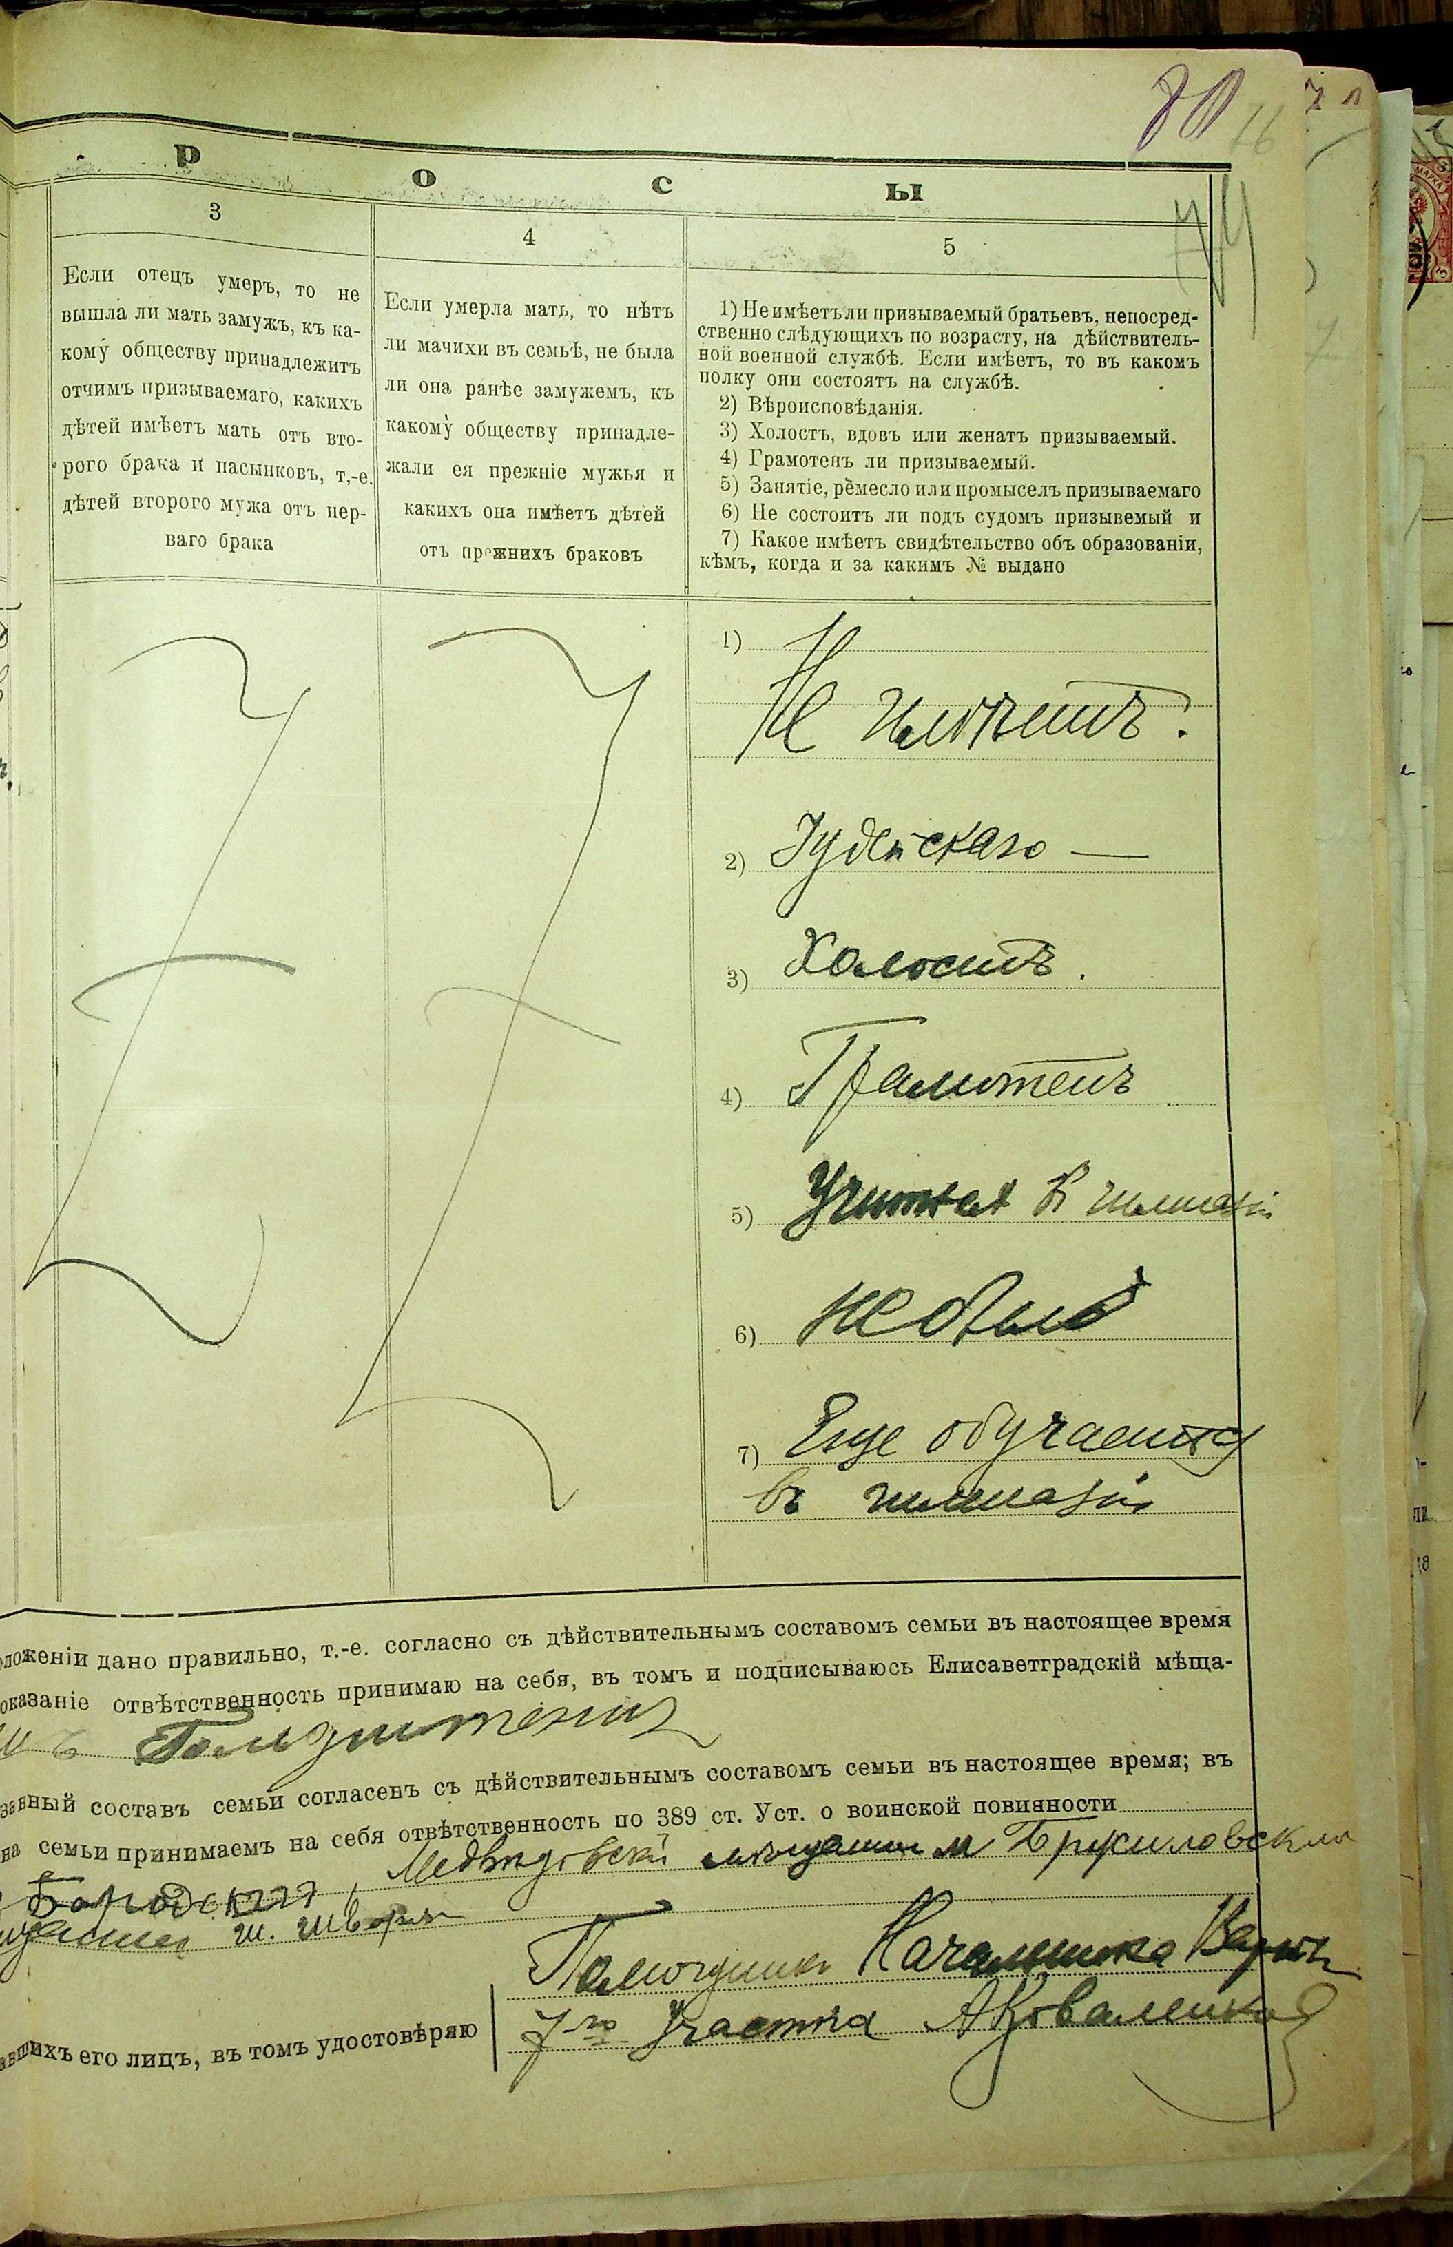 80 76
74
р о с ы
3
Если отецъ умеръ, то не
вышла ли мать замужъ, къ ка-
кому обществу принадлежитъ
отчимъ призываемаго, какихъ
дѣтей имѣетъ мать отъ вто-
рого брака и пасынковъ, т.-е.
дѣтей второго мужа отъ пер-
ваго брака
4
Если умерла мать, то нѣтъ
ли мачихи въ семьѣ, не была
ли она ранѣе замужемъ, къ
какому обществу принадле-
жали ея прежніе мужья и
какихъ она имѣетъ дѣтей
отъ прежнихъ браковъ
5
1) Не имѣетъ ли призываемый братьевъ, непосред-
ственно слѣдующихъ по возрасту, на дѣйствитель-
ной военной службѣ. Если имѣетъ, то въ какомъ
полку они состоятъ на службѣ.
2) Вѣроисповѣданія.
3) Холостъ, вдовъ или женатъ призываемый.
4) Грамотенъ ли призываемый.
5) Занятіе, ремесло или промыселъ призываемаго
6) Не состоитъ ли подъ судомъ призывемый и
7) Какое имѣетъ свидѣтельство объ образованіи,
кѣмъ, когда и за какимъ № выдано
1)
Не имѣетъ.
2) Іудейскаго —
3) Холостъ.
4) Грамотенъ
5) в гимназіи
6) не былъ
7) Еще обучается
въ гимназіи
оложеніи дано правильно, т.-е. согласно съ дѣйствительнымъ составомъ семьи въ настоящее время
оказаніе отвѣтственность принимаю на себя, въ томъ и подписываюсь Елисаветградскій мѣща-
занный составъ семьи согласенъ съ дѣйствительнымъ составомъ семьи въ настоящее время; въ
на семьи принимаемъ на себя отвѣтственность по 389 ст. Уст. о воинской повинности
Медвѣдовскій
Помощникъ Начальника
7го участка А Коваленко
авшихъ его лицъ, въ томъ удостовѣряю